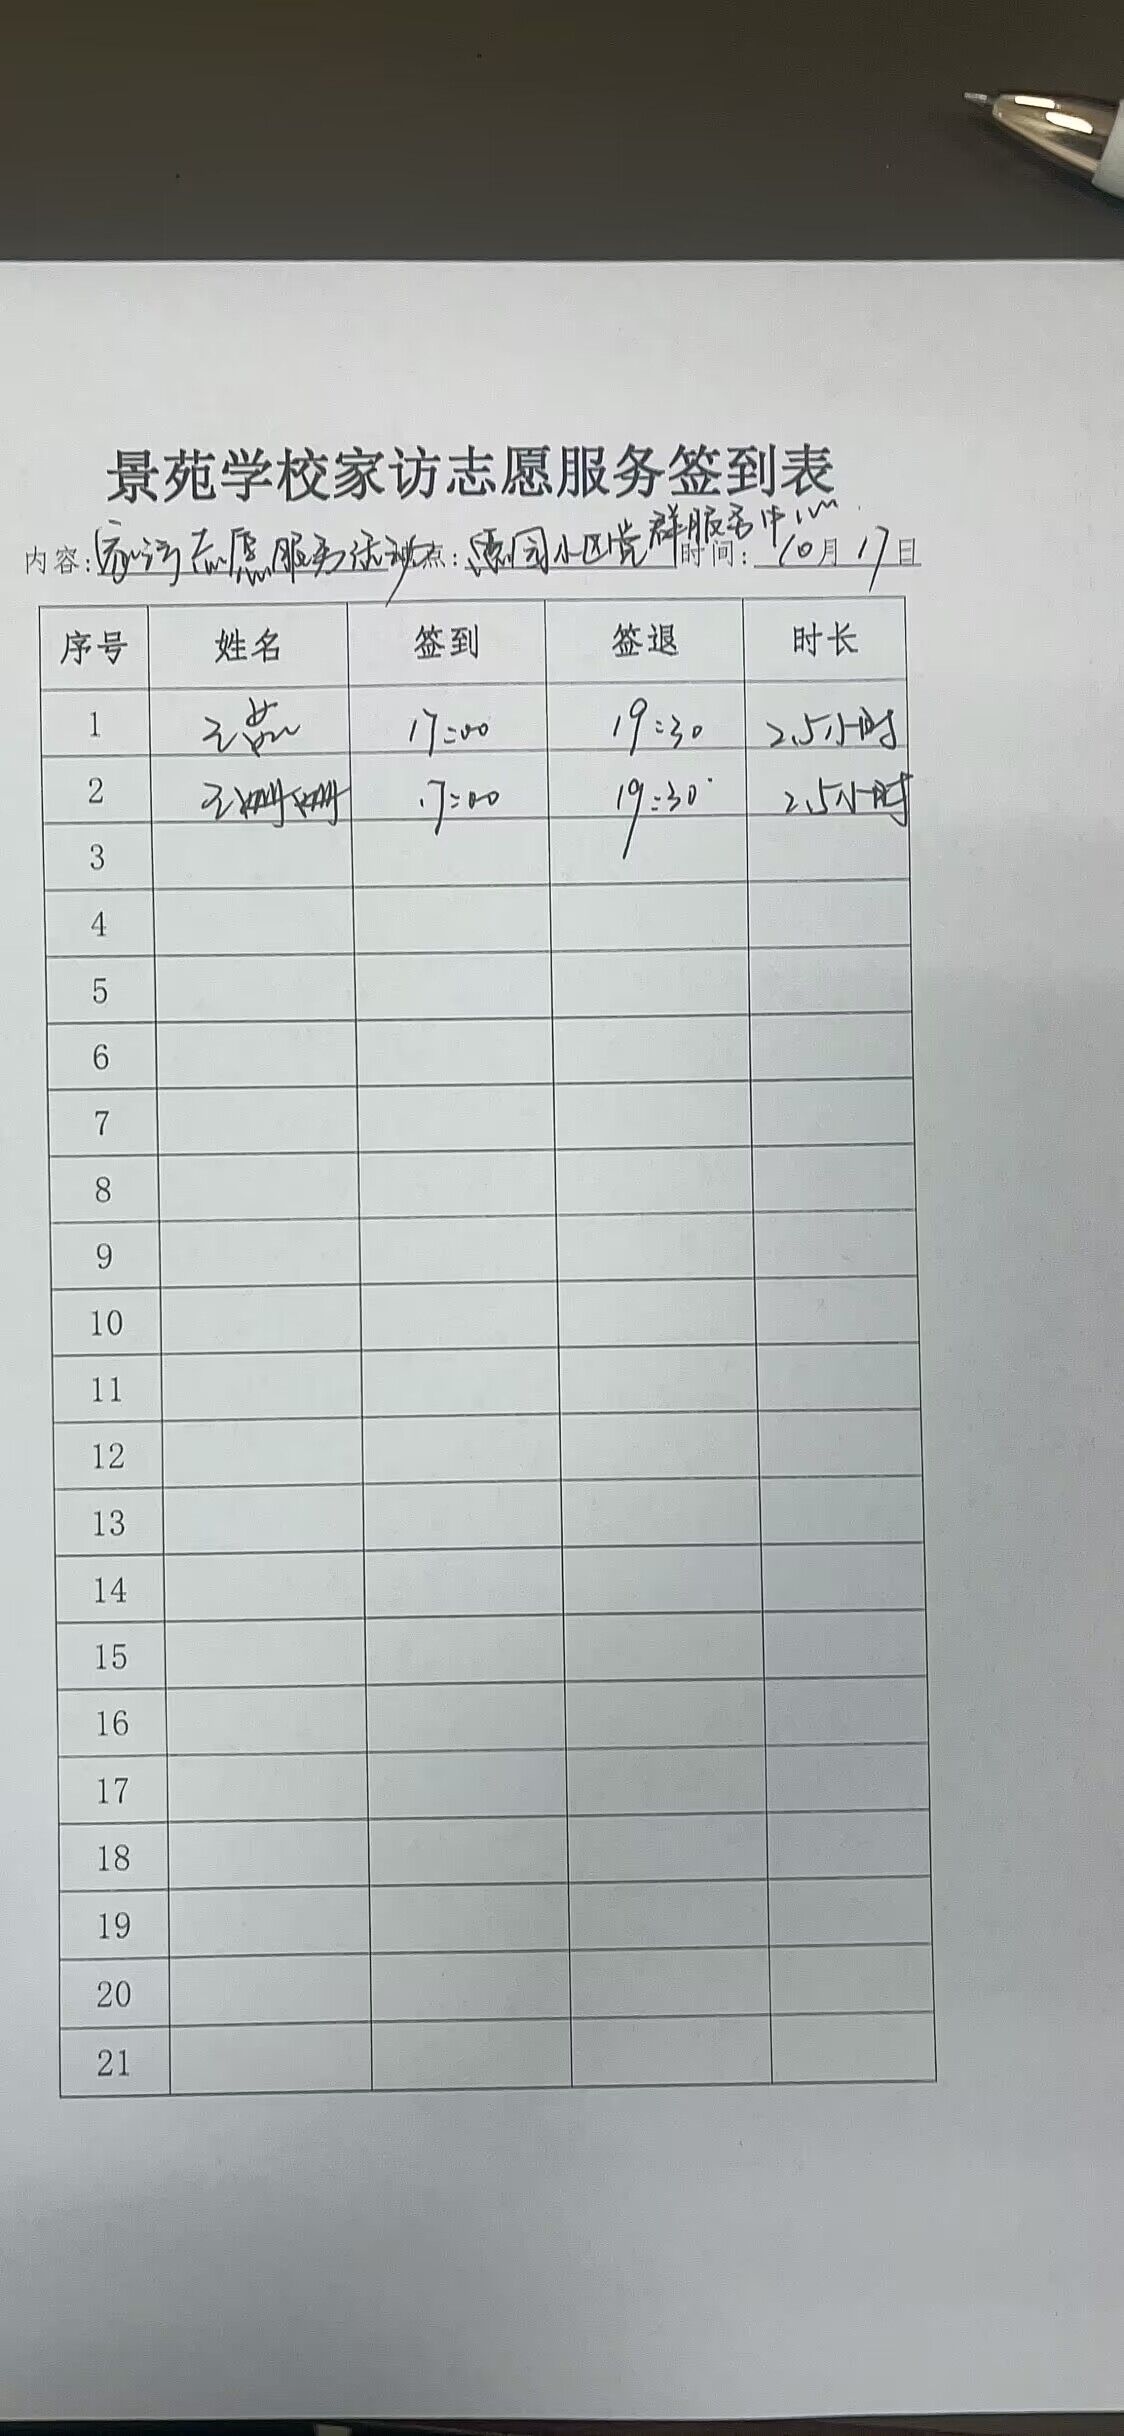 景苑学校家访志愿服务签到表
内容:家访志愿服务活动 点:景园小区党群服务中心 时间:10月17日
序号 姓名 签到 签退 时长
1 王蕊 17:00 19:30 2.5小时
2 王珊珊 17:00 19:30 2.5小时
3
4
5
6
7
8
9
10
11
12
13
14
15
16
17
18
19
20
21